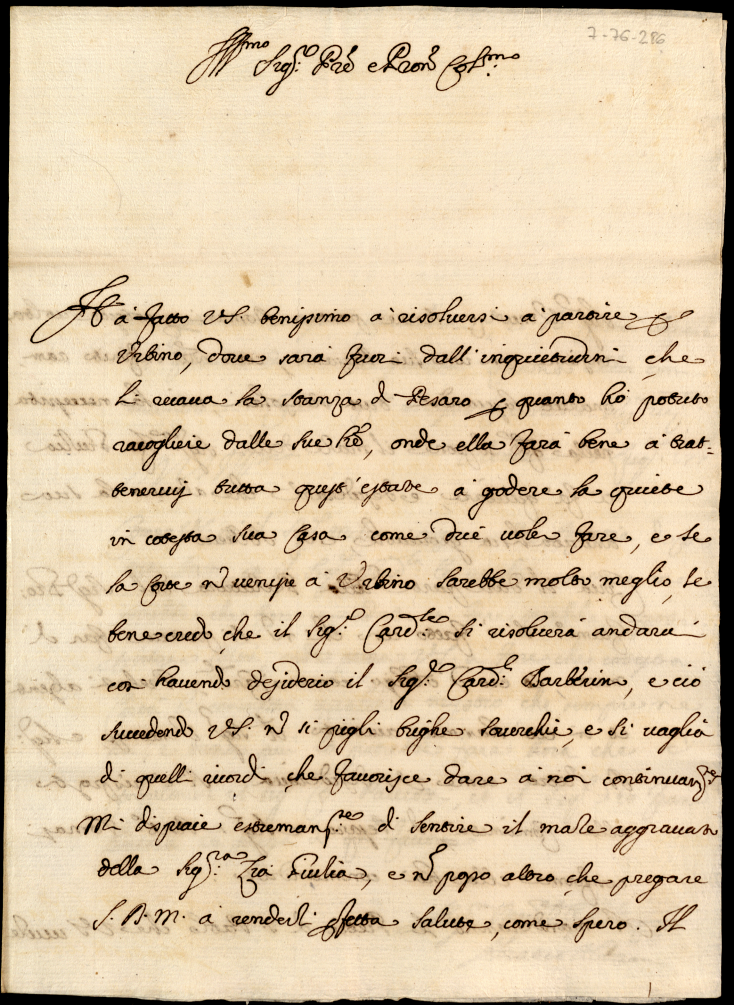 7-76-286
Ill.mo Sig.re Pre e Pron Col.mo
Hà fatto VS. benissimo à risoluersi à partire p
Vrbino, doue sarà fuori dall'inquietudini che
li recaua la stanza di Pesaro p quanto hò potuto
racogliere dalle sue l're, onde ella farà bene à trat-
teneruisi tutta quest'estate à godere la quiete
in cotesta sua Casa come dice uoler fare, e se
la Corte n uenisse à Vrbino sarebbe molto meglio, se
bene credo che il Sig.re Card.le si risoluerà andarui
con hauendo desiderio il Sig.re Card.l Barberin, e ciò
succedendo VS. n si pigli brighe souerchie, e si uaglia
di quelli ricordi che fauorisce dare à noi continuam.te
Mi dispiace estremam.te di sentire il male aggrauato
della Sig.ra Zia Giulia, e n posso altro che pregare
S. D. M. à renderli pfetta salute, come spero. Il